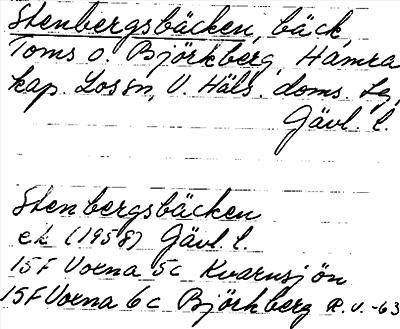 Stenbergsbäcken, bäck
Toms o. Björkberg, Hamra
kap. Lossn, V. Häls. doms. Lg,
Gävl. l.
Stenbergsbäcken
ek (1958) Gävl. l.
15F Voxna 5c Kvarnsjön
15F Voxna 6c Björkberg R.V.-63